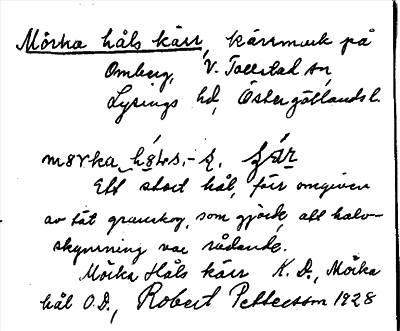 Mörka håls kärr, kärrmark på
Omberg, V. Tollstad sn,
Lysings hd, Östergötlands l.
mørka hø̀ls,-
Ett stort hål, förr omgiven
av tät granskog, som gjorde, att halv-
skymning var rådande.
Mörka Håls kärr K. D., Mörka
hål O.D., Robert Pettersson 1928